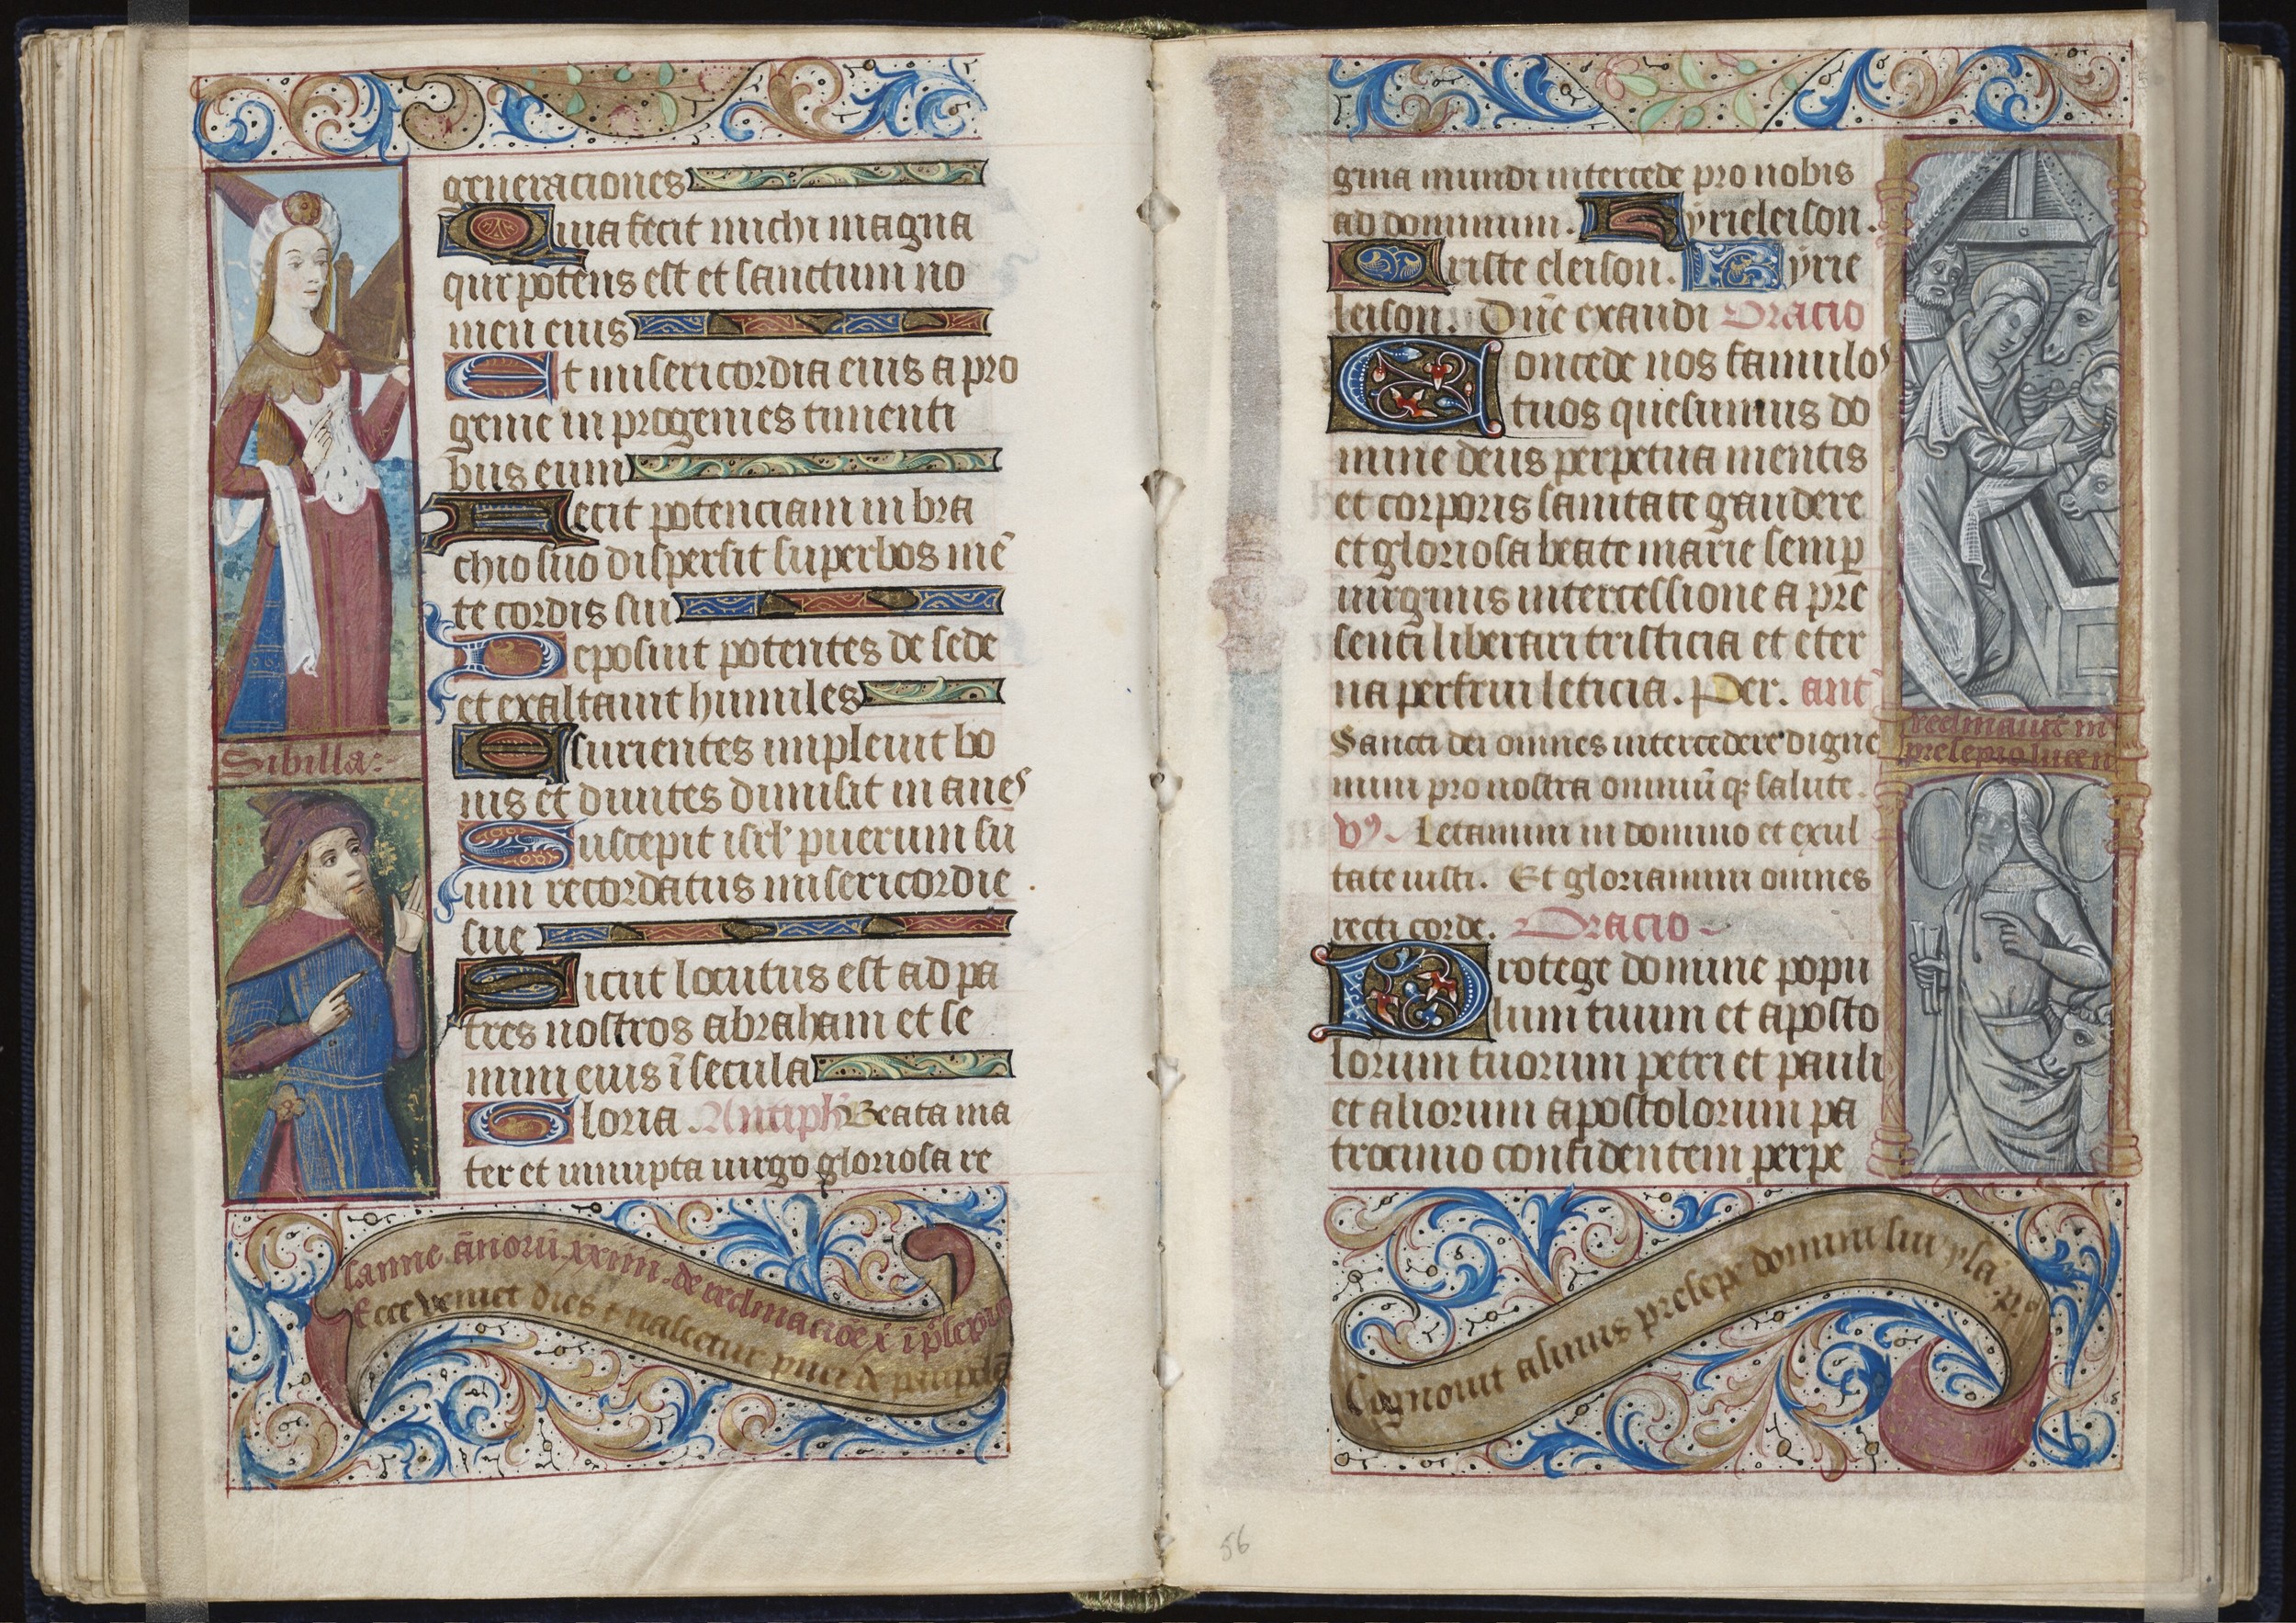 generaciones
Quia fecit michi magna
qui potens est et sanctum no
men eius
Et misericordia eius a pro
genie in progenies timenti
bus eum
Fecit potenciam in bra
chio suo dispersit superbos mē
te cordis sui
Deposuit potentes de sede
et exaltauit humiles
Esurientes impleuit bo
nis et diuites dimisit inanes
Suscepit isrl' puerum su
um recordatus misericordie
sue
Sicut locutus est ad pa
tres nostros abraham et se
mini eius ī secula
Gloria. Antiph' Beata ma
ter et innupta uirgo gloriosa re
Sibilla:-
samie ānorū xxiiii. de reclinacioē
Ecce veniet dies & nascetur puer de
gina mundi intercede pro nobis
ad dominum. Kyrieleison.
Criste eleison. Kyrie
leison. Dn̄e exaudi Oracio
Concede nos famulos
tuos quesumus do
mine deus perpetua mentis
et corporis sanitate gaudere
et gloriosa beate marie semp
uirginis intercessione a pre
senti liberari tristicia et eter
na perfrui leticia. Per. ant'
Sancti dei omnes intercedere digne
mini pro nostra omniū q; salute.
V9. Letamini in domino et exul
tate iusti. Et gloriamini omnes
recti corde. Oracio
Protege domine popu
lum tuum et aposto
lorum tuorum petri et pauli
et aliorum apostolorum pa
trocinio confidentem perpe
reclinauit in
presepio
Cognouit asinus presepe domini sui ysa. p.
56